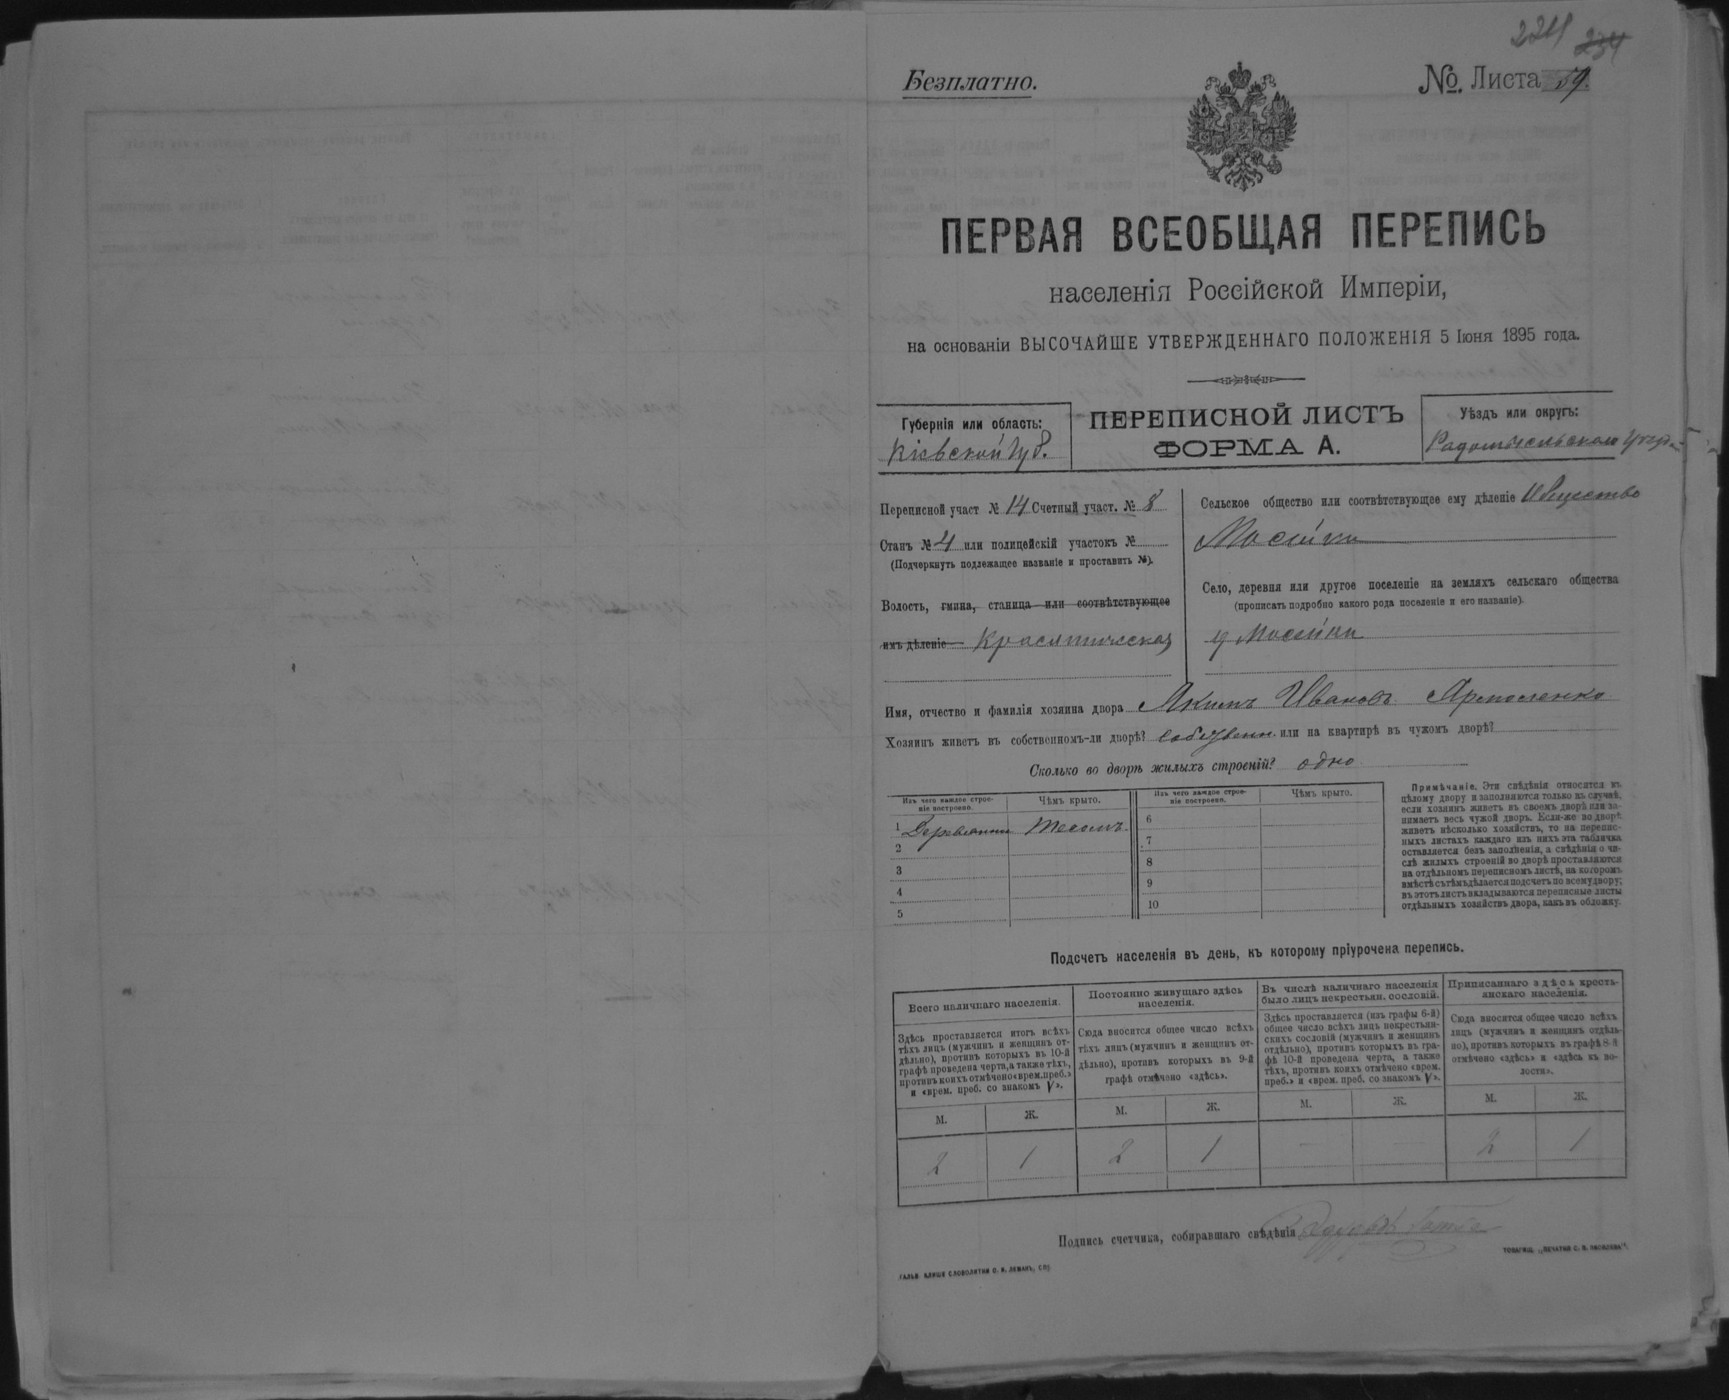 234
Безплатно.
№. Листа 59.
ПЕРВАЯ ВСЕОБЩАЯ ПЕРЕПИСЬ
населенія Россійской Имперіи,
на основаніи ВЫСОЧАЙШЕ УТВЕРЖДЕННАГО ПОЛОЖЕНІЯ 5 Іюня 1895 года.
Губернія или область:
Кіевской Губ.
ПЕРЕПИСНОЙ ЛИСТЪ
ФОРМА А.
Уѣздъ или округъ:
Радомысльскаго Уѣзда
Переписной участ № 14 Счетный участ. № 8
Станъ № 4 или полицейскій участокъ №
(Подчеркнуть подлежащее названіе и проставить №).
Волость, гмина, станица или соотвѣтствующее
имъ дѣленіе Красятическая
Сельское общество или соотвѣтствующее ему дѣленіе Общество
Мосейки
Село, деревня или другое поселеніе на земляхъ сельскаго общества
(прописать подробно какого рода поселеніе и его названіе).
Мосейки
Имя, отчество и фамилія хозяина двора Якимъ Ивановъ Ярмоленко
Хозяинъ живетъ въ собственномъ-ли дворѣ? собственн. или на квартирѣ въ чужомъ дворѣ?
Сколько во дворѣ жилыхъ строеній? одно
Изъ чего каждое строе-
ніе построено.
Чѣмъ крыто.
1 Деревянный Тесомъ.
2
3
4
5
Изъ чего каждое строе-
ніе построено.
Чѣмъ крыто.
6
7
8
9
10
Примѣчаніе. Эти свѣдѣнія относятся къ
цѣлому двору и заполняются только въ случаѣ,
если хозяинъ живетъ въ своемъ дворѣ или за-
нимаетъ весь чужой дворъ. Если-же во дворѣ
живетъ нѣсколько хозяйствъ, то на перепис-
ныхъ листахъ каждаго изъ нихъ эта табличка
оставляется безъ заполненія, а свѣдѣнія о чи-
слѣ жилыхъ строеній во дворѣ проставляются
на отдѣльномъ переписномъ листѣ, на которомъ
вмѣстѣ съ тѣмъ дѣлается подсчетъ по всему двору;
въ этотъ листъ вкладываются переписные листы
отдѣльныхъ хозяйствъ двора, какъ въ обложку.
Подсчетъ населенія въ день, къ которому пріурочена перепись.
Всего наличнаго населенія.
Здѣсь проставляется итогъ всѣхъ
тѣхъ лицъ (мужчинъ и женщинъ от-
дѣльно), противъ которыхъ въ 10-й
графѣ проведена черта, а также тѣхъ,
противъ коихъ отмѣчено «врем. преб.»
и «врем. преб. со знакомъ V».
М. Ж.
2 1
Постоянно живущаго здѣсь
населенія.
Сюда вносится общее число всѣхъ
тѣхъ лицъ (мужчинъ и женщинъ от-
дѣльно), противъ которыхъ въ 9-й
графѣ отмѣчено «здѣсь».
М. Ж.
2 1
Въ числѣ наличнаго населенія
было лицъ некрестьян. сословій.
Здѣсь проставляется (изъ графы 6-й)
общее число всѣхъ лицъ некрестьян-
скихъ сословій (мужчинъ и женщинъ
отдѣльно), противъ которыхъ въ гра-
фѣ 10-й проведена черта, а также
тѣхъ, противъ коихъ отмѣчено «врем.
преб.» и «врем. преб. со знакомъ V».
М. Ж.
— —
Приписаннаго здѣсь кресть-
янскаго населенія.
Сюда вносится общее число всѣхъ
лицъ (мужчинъ и женщинъ отдѣль-
но), противъ которыхъ въ графѣ 8-й
отмѣчено «здѣсь» и «здѣсь къ во-
лости».
М. Ж.
2 1
Подпись счетчика, собиравшаго свѣдѣнія
ГАЛЬВ. КЛИШЕ СЛОВОЛИТНИ О. И. ЛЕМАНЪ, СПБ.
ТОВАРИЩ. „ПЕЧАТНЯ С. П. ЯКОВЛЕВА“.